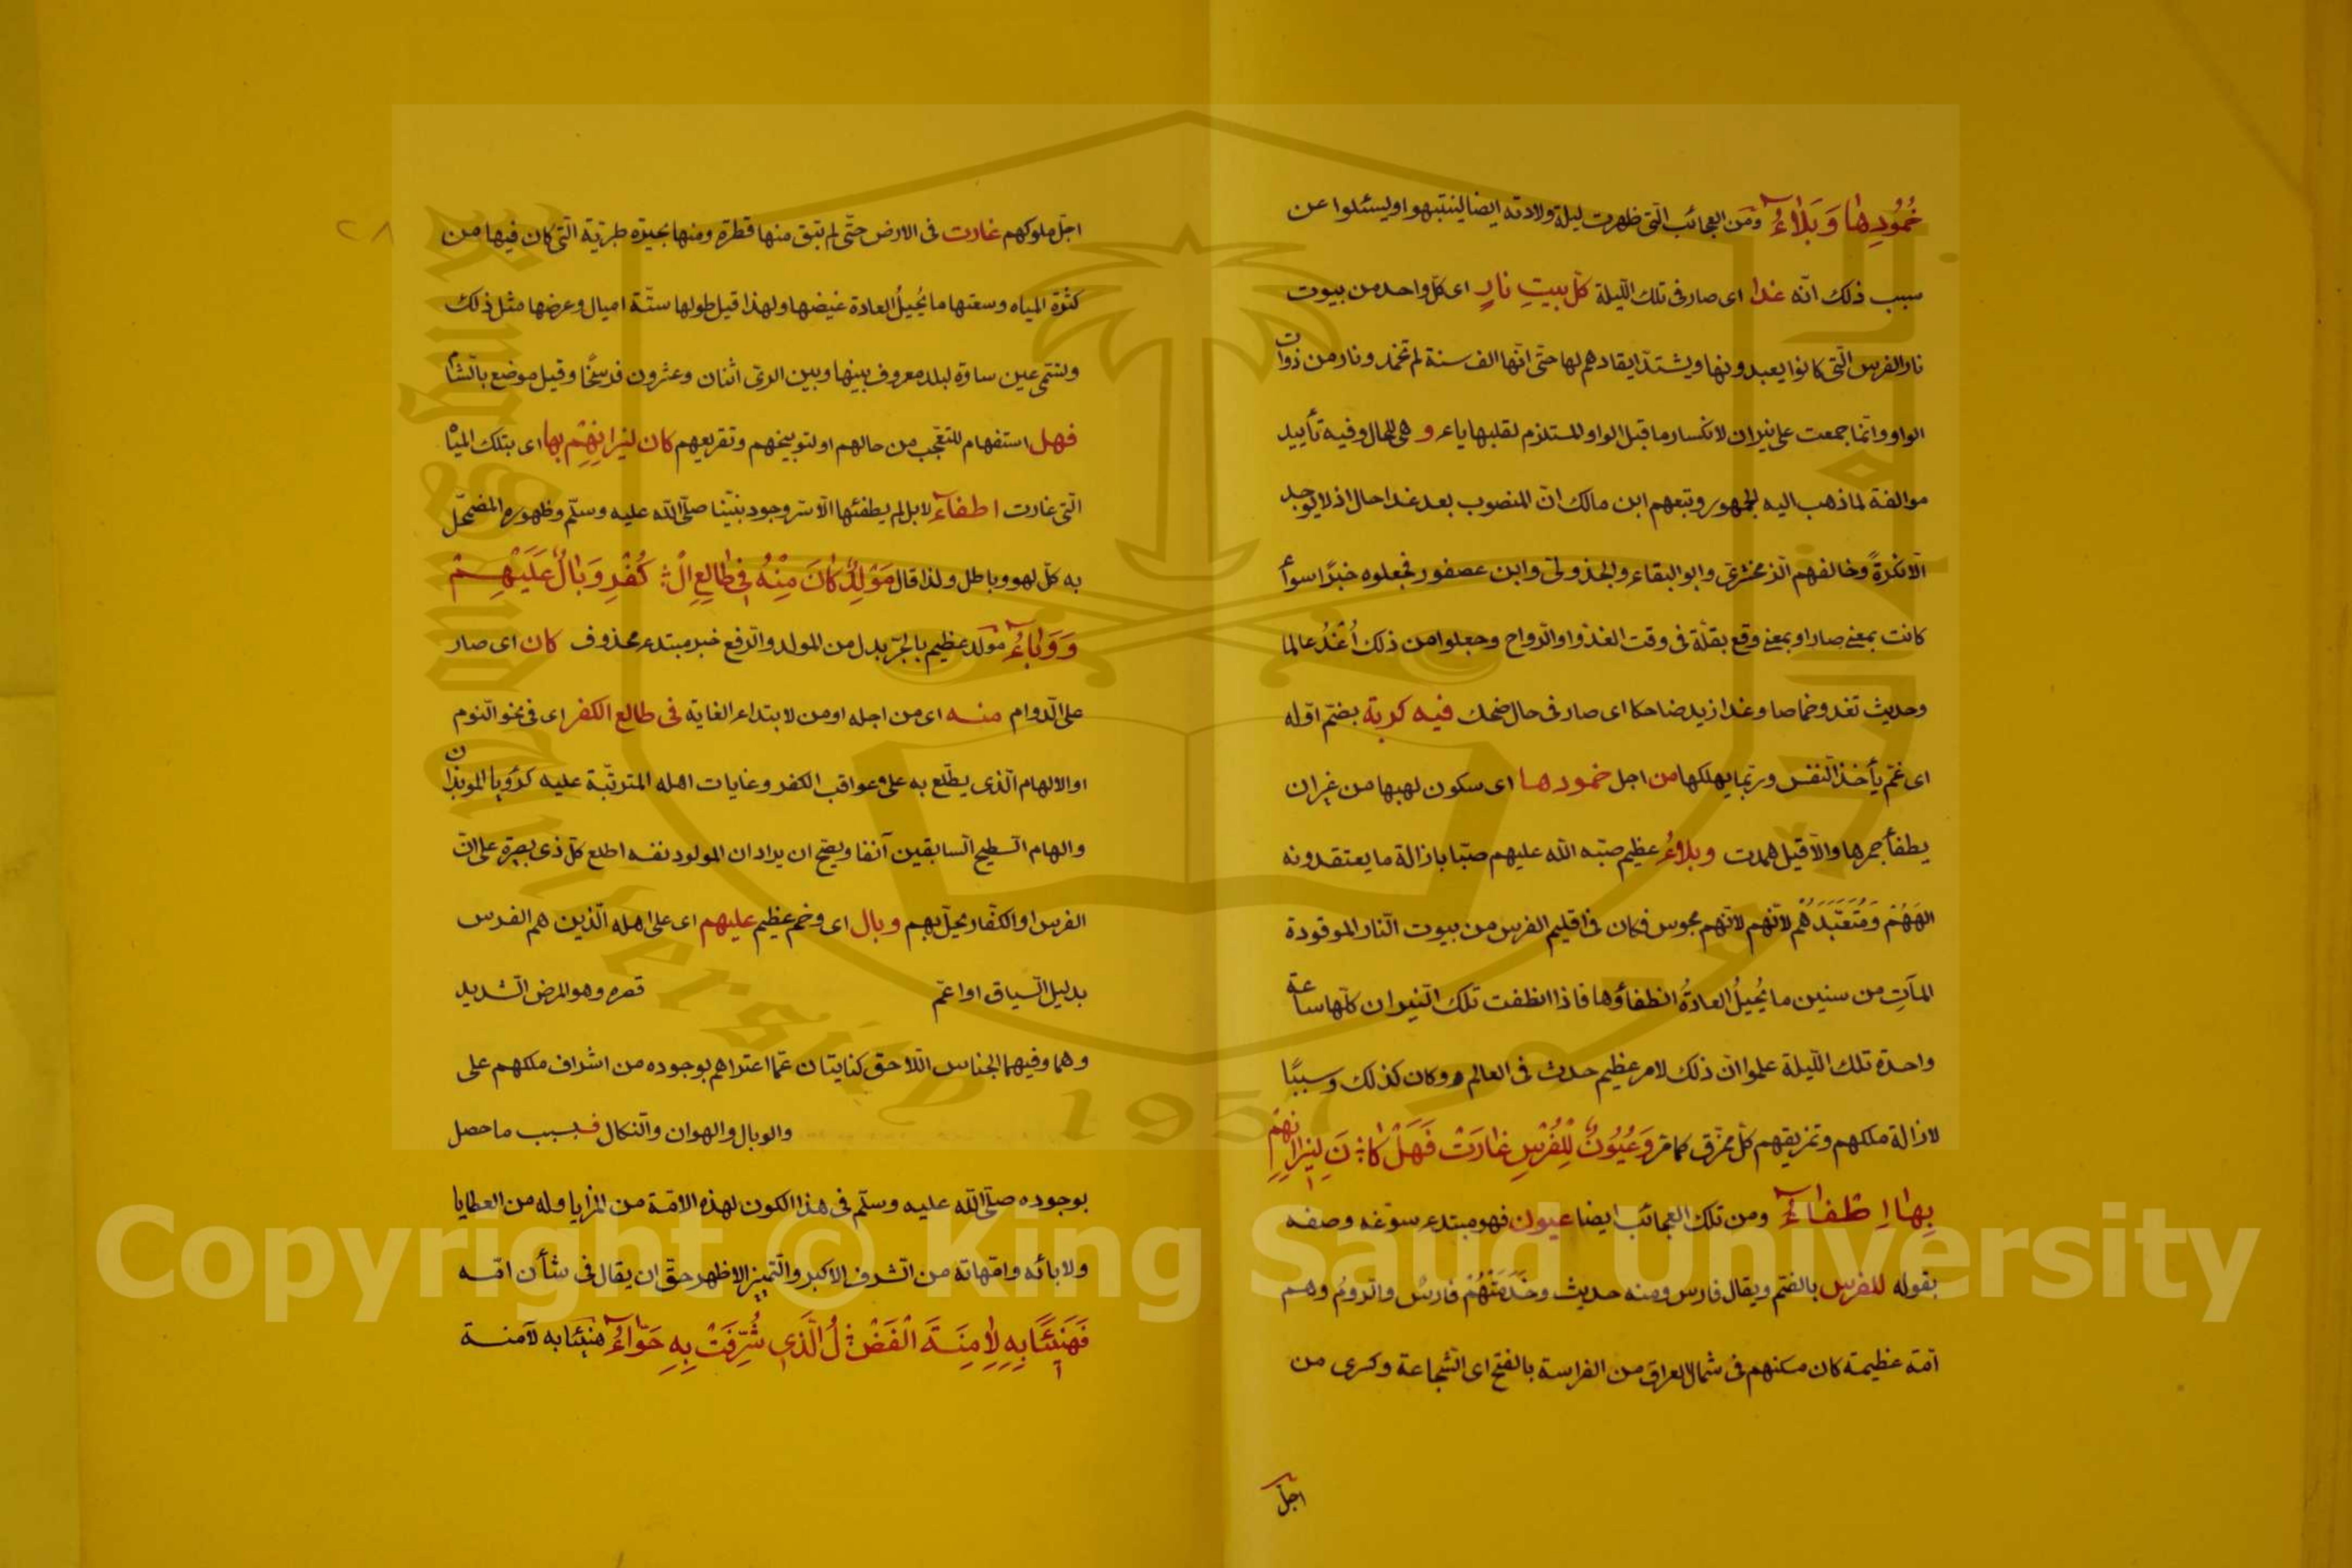 خُمُودِهَا وَبَلَاءُ ومن العجائب الّتى ظهرت ليلة ولادته ايضا لينتبهوا وليسئلوا عن
سبب ذلك انّه غدا اى صار فى تلك اللّيلة كلّ بيتِ نارٍ اى كلّ واحد من بيوت
نار الفرس الّتى كانوا يعبدونها ويشتدّ ايقادهم لها حتّى انّها الف سنة لم تخمد ونار من ذوات
الواو وانّما جمعت على نيران لانكسار ما قبل الواو المستلزم لقلبها ياء و هى للحال وفيه تأييد
موالفة لما ذهب اليه الجمهور وتبعهم ابن مالك انّ المنصوب بعد غدا حال اذ لا يوجد
الّا نكرةً وخالفهم الزمخشرىّ وابو البقاء والجذولى وابن عصفور فجعلوه خبرًا سوأ
كانت بمعنى صار او بمعنى وقع بقلّة فى وقت الغدوّ او الرّواح وجعلوا من ذلك اُغْدُ عالما
وحديث تغدو خماصا وغدا زيد ضاحكا اى صار فى حال ضحك فيه كربة بضمّ اوّله
اى غمّ يأخذ النفس وربّما يهلكها من اجل خمودها اى سكون لهبها من غير ان
يطفأ جمرها والّا قيل همدت وبلاءُ عظيم صبّه الله عليهم صبّا بازالة ما يعتقدونه
الهَهُمْ وَمُتَعَبَّدَهُم لانّهم لانّهم مجوس فكان فى اقليم الفرس من بيوت النّار الموقودة
المآتِ من سنين ما يُحيلُ العادةُ انطفأؤها فاذا انطفت تلك النّيران كلّها ساعة
واحدة تلك اللّيلة علموا انّ ذلك لامر عظيم حدث فى العالم وكان كذلك وسببًا
لازالة ملكهم وتمزيقهم كلّ ممزّق كما مرّ وَعُيُونٌ لِلْفُرْسِ غَارَتْ فَهَلْ كَا نَ لِنِيرَانِهِمْ
بِهَا اِطْفَاءُ ومن تلك العجائب ايضا عيون فهو مبتدء سوّغه وصفه
بقوله للفرس بالضّم ويقال فارس ومنه حديث وخَدَمَتْهُمْ فارسُ والرّومُ وهم
امّة عظيمة كان مسكنهم فى شمال العراق من الفراسة بالفتح اى الشّجاعة وكسرى من
اجلّ
٢٨
اجلّ ملوكهم غارت فى الارض حتّى لم تبق منها قطرة ومنها بحيرة طبريّة الّتى كان فيها من
كثرة المياه وسعتها ما يُحيلُ العادة غيضها ولهذا قيل طولها ستّة اميال وعرضها مثل ذلك
وتسمّى عين ساوة لبلد معروف بينها وبين الرىّ اثنان وعشرون فرسخًا وقيل موضع بالشّام
فهل استفهام للتعجّب من حالهم او لتوبيخهم وتقريعهم كان لنيرانِهِمْ بها اى بتلك المياه
الّتى غارت اطفاء لا بل لم يطفئها الّا سرّ وجود نبيّنا صلّى الله عليه وسلّم وظهوره المضمحلّ
به كلّ لهو وباطل ولذا قال مَوْلِدٌ كَانَ مِنْهُ فِى طَالِعِ الْ كُفْرِ وَبَالٌ عَلَيْهِمْ
وَوَبَاءُ مولد عظيم بالجرّ بدل من المولد والرّفع خبر مبتدء محذوف كان اى صار
على الدّوام منه اى من اجله او من لابتداء الغاية فى طالع الكفر اى فى نحو النّوم
او الالهام الّذى يطّلع به على عواقب الكفر وغايات اهله المترتّبة عليه كرؤيا الموبذان
والهام السّطيح السّابقين آنفا ويصّح ان يراد ان المولود نفسه اطلع كلّ ذى بصيرة على انّ
الفرس او الكفّار يحلّ بهم وبال اى وخم عظيم عليهم اى على اهله الّذين هم الفرس
بدليل السّياق او اعمّ قصره وهو المرض الشّديد
وهما وفيهما الجناس اللّاحق كنايتان عمّا اعتراهم بوجوده من اشراف ملكهم على
والوبال والهوان والنّكال فبسبب ما حصل
بوجوده صلّى الله عليه وسلّم فى هذا الكون لهذه الامّة من المزايا وله من العطايا
ولابائه وامّهاته من الشرف الاكبر والتّميز الاظهر حقّ ان يقال فى شأن امّه
فَهَنِيئًا بِهِ لِآمِنَةَ الْفَضْ لُ الَّذِى شُرِّفَتْ بِهِ حَوَّاءُ هنيئا به لآمنة
Copyright © King Saud University
King Saud University
1957